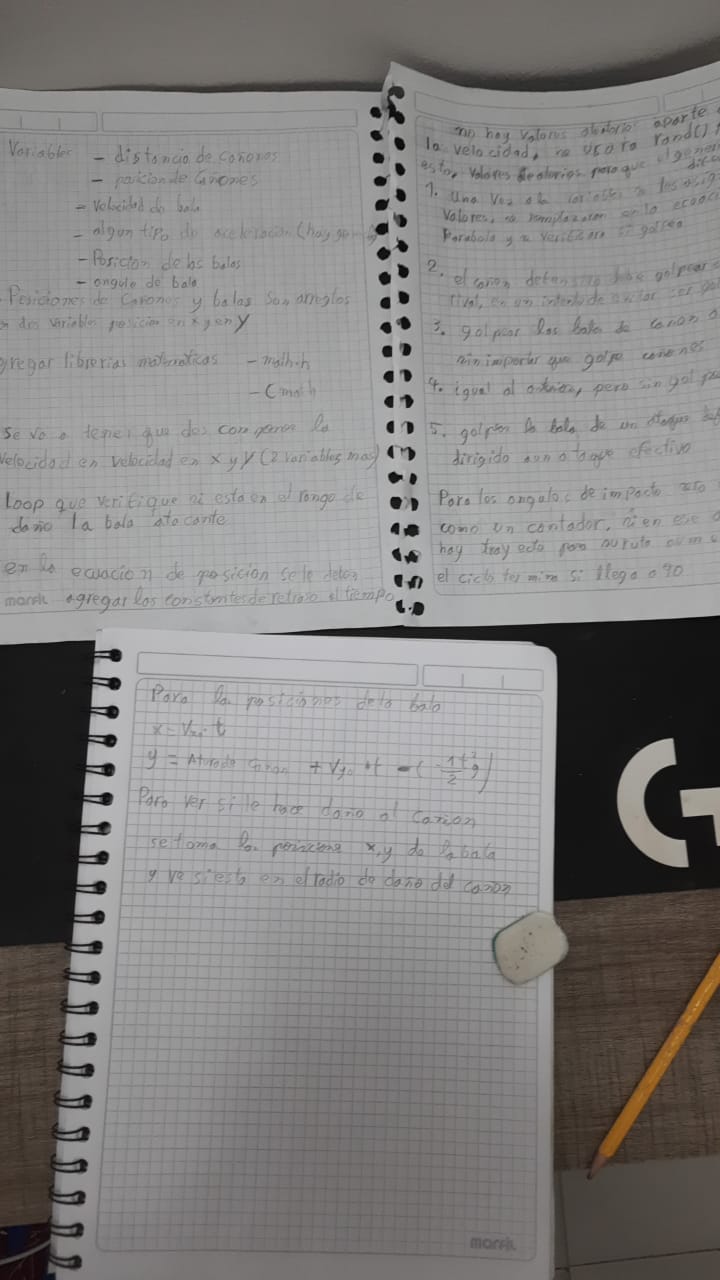 Variables - distancia de cañones
- posicion de cañones
- velocidad de bala
- algun tipo de aceleración (hay
- Posicion de las balas
- angulo de bala
Posiciones de Cañones y balas son arreglos
dos variables posicion en x y en y
gregar librerias matematicas - math.h
- Cmath
se va a tener que descomponer la
velocidad en velocidad en x y y (2 variables mas)
Loop que verifique si esta en el rango de
daño la bala atacante
en la ecuacion de posicion se le deben
agregar las constantes de retraso el tiempo
marfil
no hay valores aleatorios aparte
la velocidad, se usara rand()
esto, valores aleatorios para que el
1. Una vez a la variables se les
valores, se remplazaran en la
Parabola y se verificara si golpea
2. el cañon defensivo debe golpear
rival, en un intento de evitar ser
3. golpear las bala de cañon
sin importar que golpe cañones
4. igual al anterior, pero sin
5. golpear la bala de un ataque
dirigido a un ataque efectivo
Para los angulos de impacto
como un contador, si en ese
hay trayecto para su ruta
el ciclo termina si llega a 90
Para la posiciones de la bala
x = Vxo · t
y = Altura de Cañon + Vyo * t - (1/2 t² g)
Para ver si le hace daño al Cañon
se toma la posicione x,y de la bala
y ve si esta en el radio de daño del cañon
marfil
G